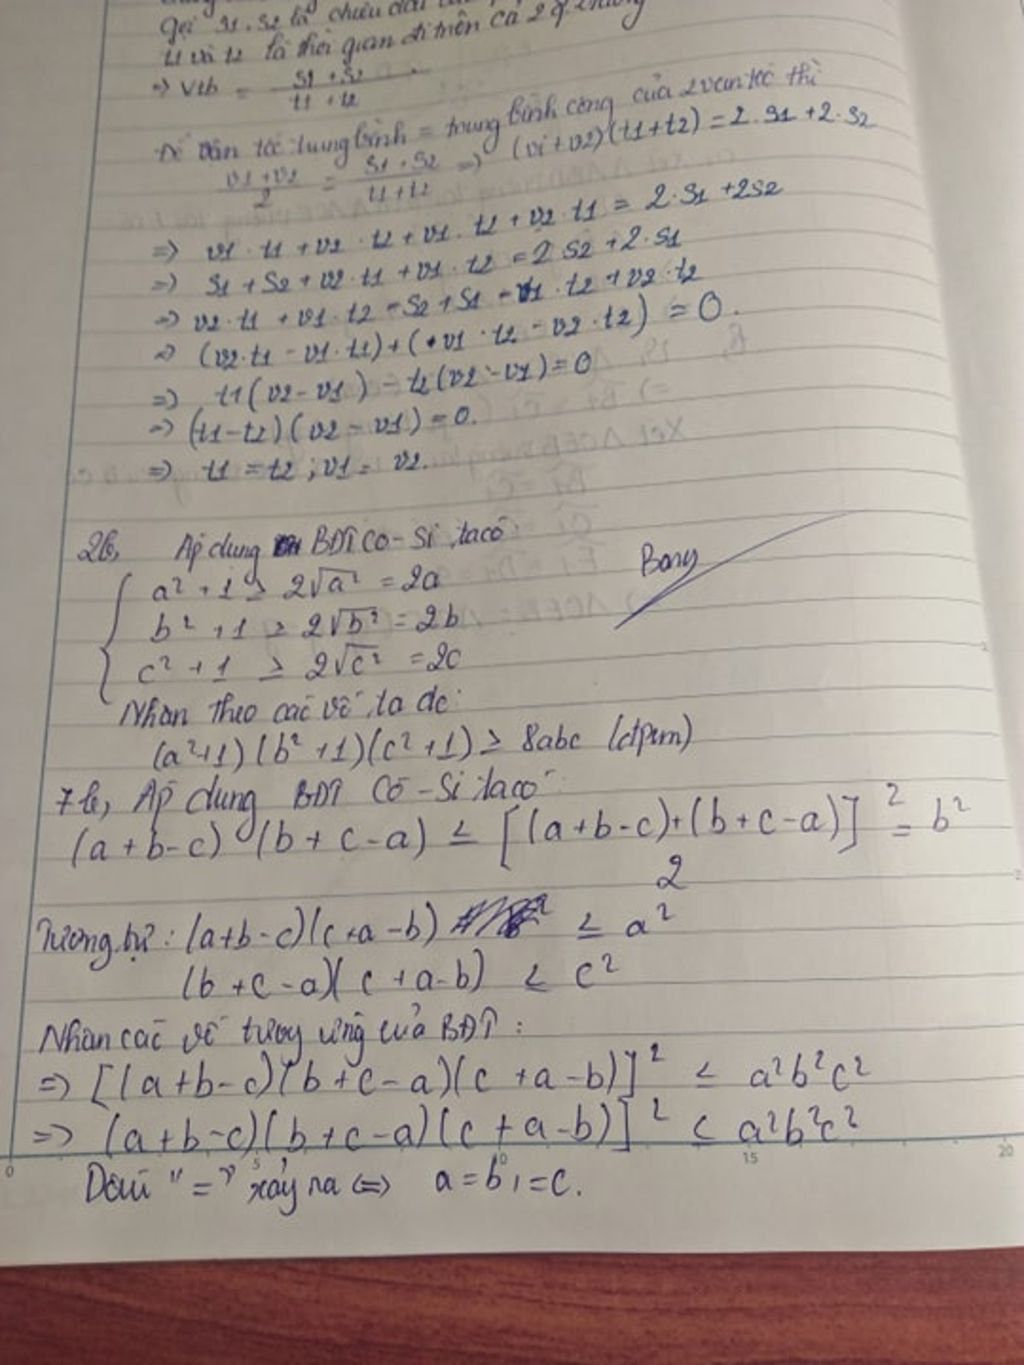 gọi S1, S2 là chiều dài
t1 và t2 là thời gian đi trên cả 2 q.
=> Vtb = (S1 + S2)/(t1 + t2)
Để vận tốc trung bình = trung bình cộng của 2 vận tốc thì
(v1 + v2)/2 = (S1 + S2)/(t1 + t2) => (v1 + v2)(t1 + t2) = 2.S1 + 2.S2
=> v1 . t1 + v2 . t2 + v1 . t2 + v2 . t1 = 2.S1 + 2S2
=> S1 + S2 + v2 . t1 + v1 . t2 = 2 S2 + 2.S1
=> v2.t1 + v1.t2 = S2 + S1 = v1 . t2 + v2 . t2
=> (v2.t1 - v1.t1) + (+v1 . t2 - v2 . t2) = 0.
=> t1(v2 - v1) - t2(v2 - v1) = 0
=> (t1 - t2)(v2 - v1) = 0.
=> t1 = t2 ; v1 = v2.
2b, Áp dụng BĐT Cô-Si, ta có
a² + 1 ≥ 2√a² = 2a
b² + 1 ≥ 2√b² = 2b
c² + 1 ≥ 2√c² = 2c
Nhân theo các vế, ta đc:
(a²+1)(b²+1)(c²+1) ≥ 8abc (đpcm)
7b, Áp dụng BĐT Cô-Si ta có:
(a+b-c)(b+c-a) ≤ [((a+b-c)+(b+c-a))/2]² = b²
Tương tự: (a+b-c)(c+a-b) ≤ a²
(b+c-a)(c+a-b) ≤ c²
Nhân các vế tương ứng của BĐT:
=> [(a+b-c)(b+c-a)(c+a-b)]² ≤ a²b²c²
=> (a+b-c)(b+c-a)(c+a-b)]² ≤ a²b²c²
0 5 10 15 20
Dấu "=" xảy ra <=> a = b, = c.